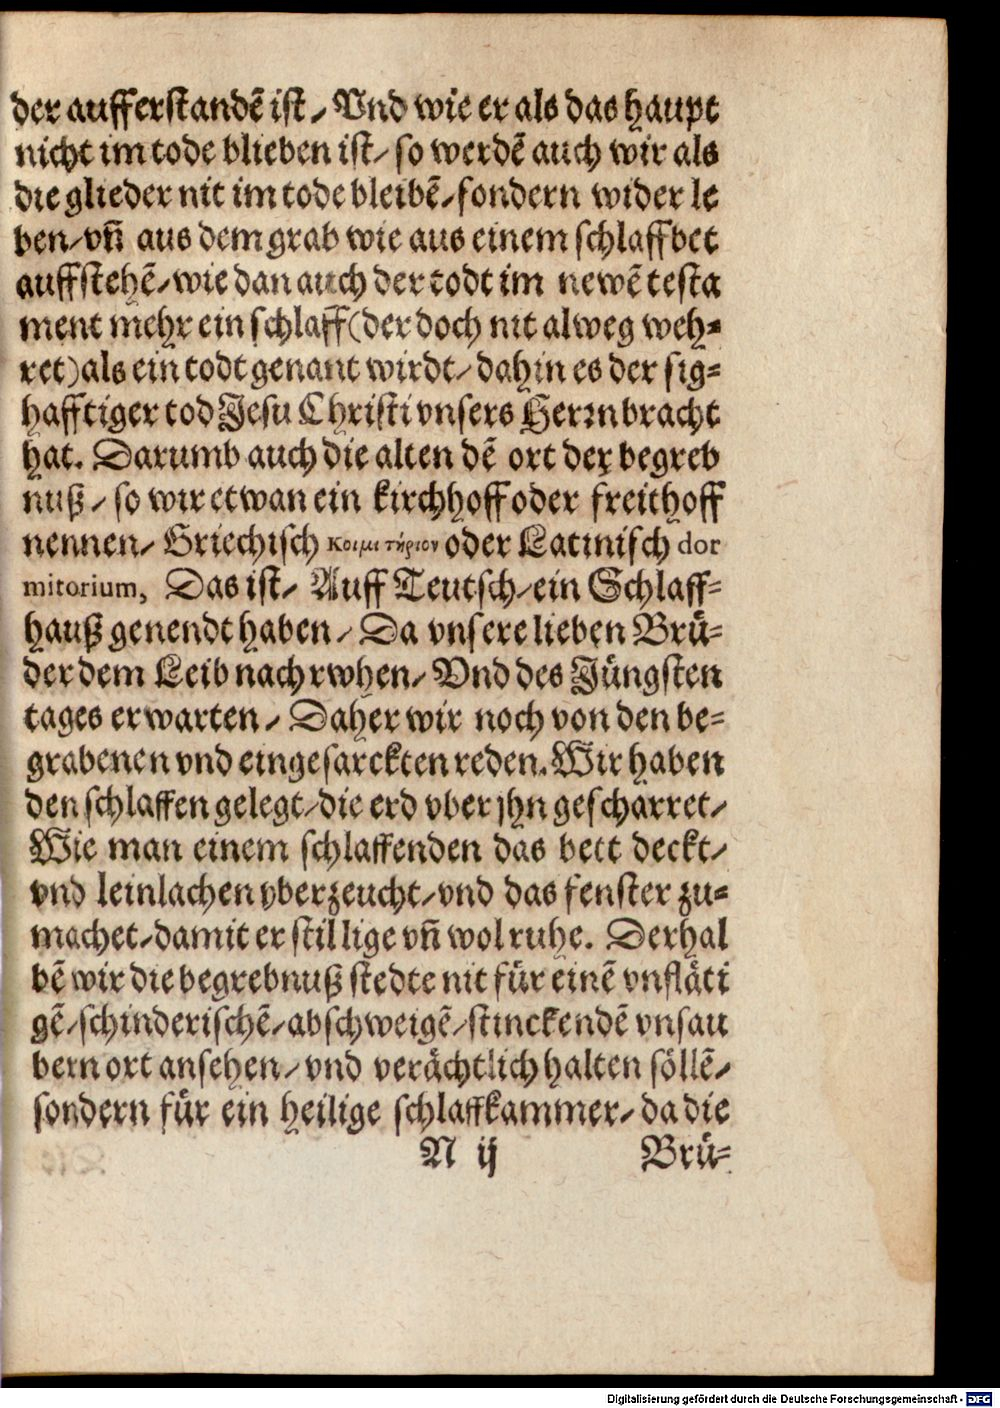 der aufferstandē ist / Vnd wie er als das haupt
nicht im tode blieben ist / so werdē auch wir als
die glieder nit im tode bleibē / sondern wider le
ben / vñ aus dem grab wie aus einem schlaffbet
auffstehē / wie dan auch der todt im newē testa
ment mehr ein schlaff (der doch nit alweg weh-
ret) als ein todt genant wirdt / dahin es der sig-
hafftiger tod Jesu Christi vnsers Herꝛn bracht
hat. Darumb auch die alten dē ort der begreb
nuß / so wir etwan ein kirchhoff oder freithoff
nennen / Griechisch κοιμιτήριον oder Latinisch dor
mitorium, Das ist / Auff Teutsch / ein Schlaff-
hauß genendt haben / Da vnsere lieben Brü-
der dem Leib nach rwhen / Vnd des Jüngsten
tages erwarten / Daher wir noch von den be-
grabenen vnd eingesarckten reden. Wir haben
den schlaffen gelegt / die erd vber jhn gescharret /
Wie man einem schlaffenden das bett deckt /
vnd leinlachen vberzeucht / vnd das fenster zu-
machet / damit er stillige vñ wol ruhe. Derhal
bē wir die begrebnuß stedte nit für einē vnfläti
gē / schinderischē / abschweigē / stinckendē vnsau
bern ort ansehen / vnd verächtlich halten söllē /
sondern für ein heilige schlaffkammer / da die
N ij Brü-
Digitalisierung gefördert durch die Deutsche Forschungsgemeinschaft - DFG